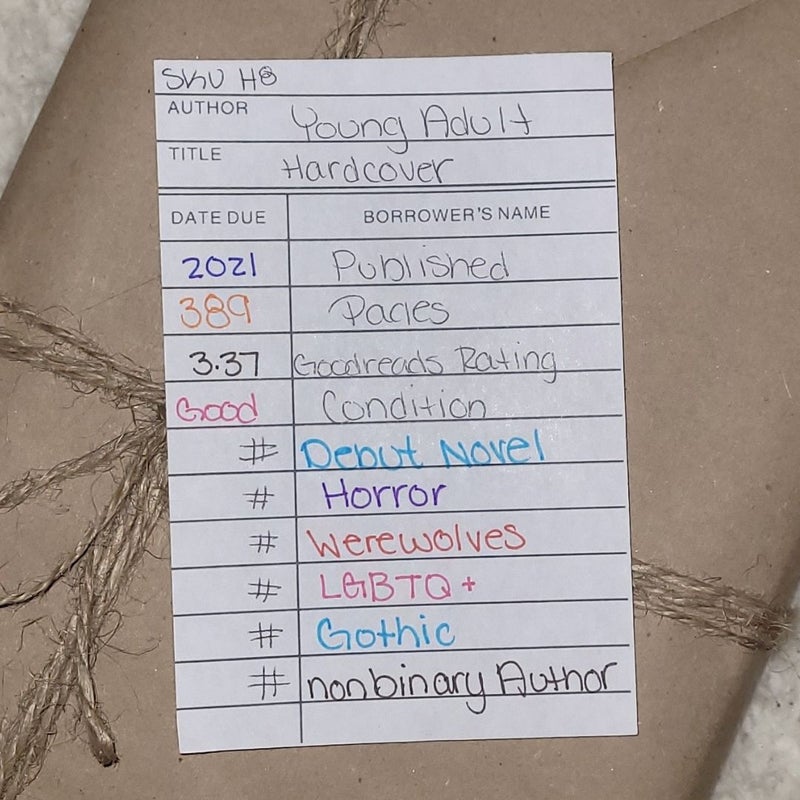 SKU H8
AUTHOR Young Adult
TITLE Hardcover
DATE DUE BORROWER'S NAME
2021 Published
389 Pages
3.37 Goodreads Rating
Good Condition
# Debut Novel
# Horror
# Werewolves
# LGBTQ+
# Gothic
# nonbinary Author